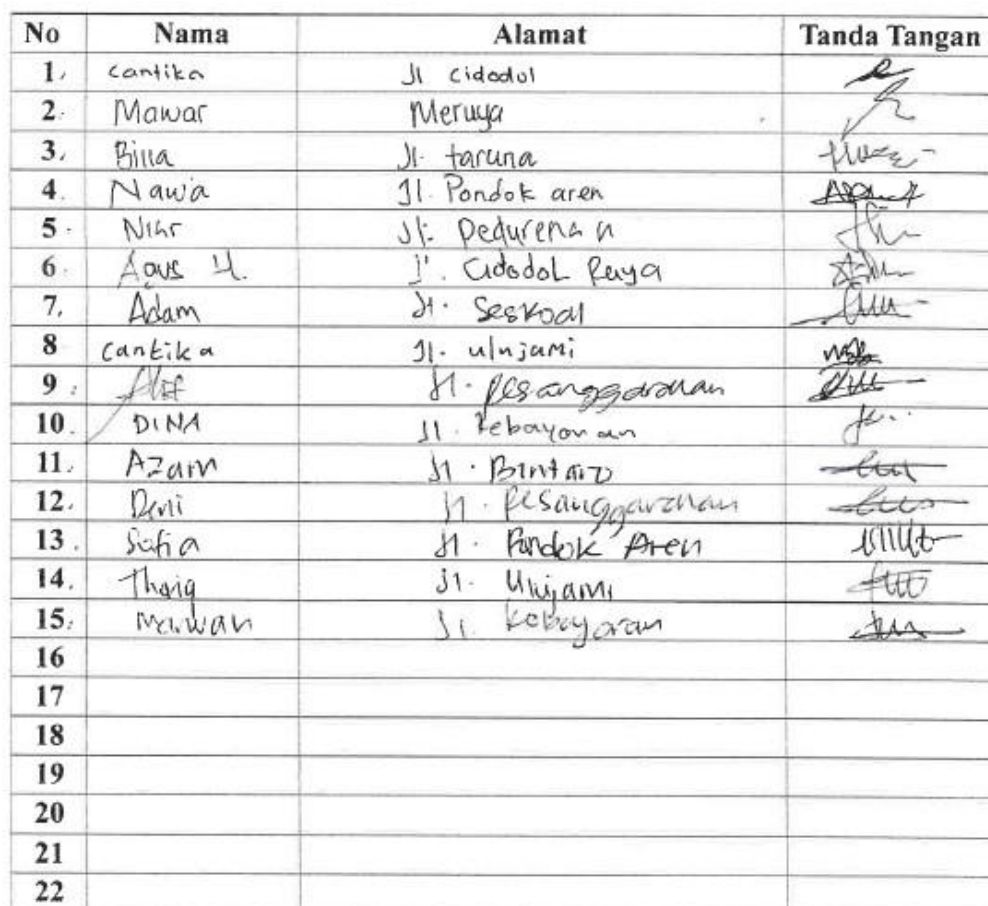 No Nama Alamat Tanda Tangan
1. Cantika Jl Cidodol
2. Mawar Meruya
3. Billa Jl. taruna
4. Nawa Jl. Pondok aren
5. Jl. Pedurenan
6. Agus H. Jl. Cidodol Raya
7. Adam Jl. Seskoal
8 Cantika Jl. ulujami
9. Jl. Pesanggarahan
10. DINA Jl. Kebayoran
11. Azam Jl. Bintaro
12. Deni Jl. Pesanggarahan
13. Safia Jl. Pondok Aren
14. Thariq Jl. Ulujami
15. Marwan Jl. Kebayoran
16
17
18
19
20
21
22